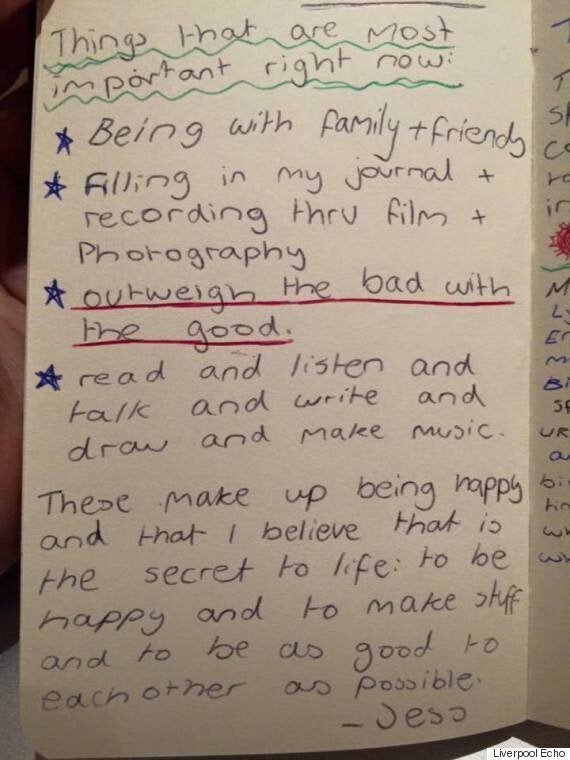 Things that are most
important right now:
★ Being with family + friends
★ Filling in my journal +
recording thru film +
Photography
★ outweigh the bad with
the good.
★ read and listen and
talk and write and
draw and make music.
These make up being happy
and that I believe that is
the secret to life: to be
happy and to make stuff
and to be as good to
each other as possible.
- Jess
Liverpool Echo